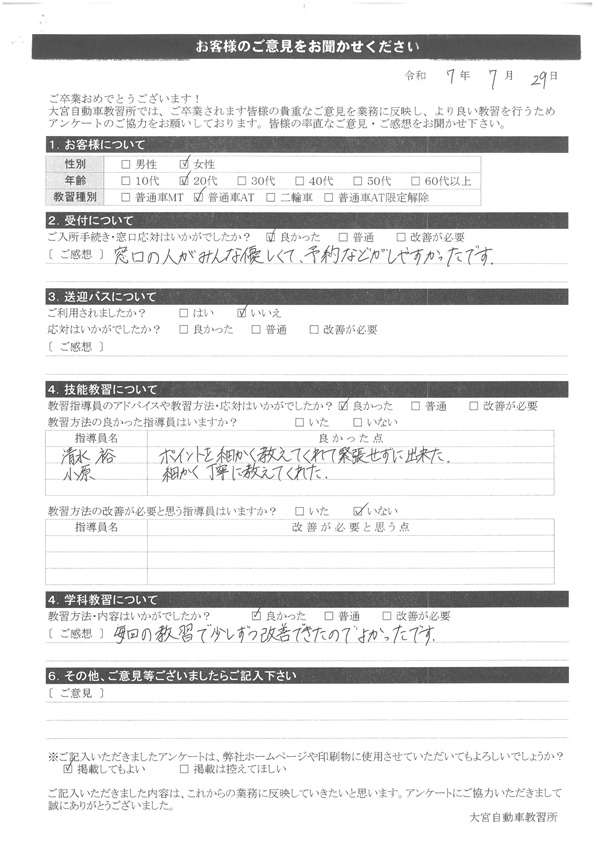 お客様のご意見をお聞かせください
令和 7 年 7 月 29 日
ご卒業おめでとうございます！
大宮自動車教習所では、ご卒業されます皆様の貴重なご意見を業務に反映し、より良い教習を行うため
アンケートのご協力をお願いしております。皆様の率直なご意見・ご感想をお聞かせ下さい。
1. お客様について
性別 □ 男性 ☑ 女性
年齢 □ 10代 ☑ 20代 □ 30代 □ 40代 □ 50代 □ 60代以上
教習種別 □ 普通車MT ☑ 普通車AT □ 二輪車 □ 普通車AT限定解除
2. 受付について
ご入所手続き・窓口応対はいかがでしたか？ ☑ 良かった □ 普通 □ 改善が必要
〔 ご感想 〕 窓口の人がみんな優しくて、予約などがしやすかったです.
3. 送迎バスについて
ご利用されましたか？ □ はい ☑ いいえ
応対はいかがでしたか？ □ 良かった □ 普通 □ 改善が必要
〔 ご感想 〕
4. 技能教習について
教習指導員のアドバイスや教習方法・応対はいかがでしたか？ ☑ 良かった □ 普通 □ 改善が必要
教習方法の良かった指導員はいますか？ □ いた □ いない
指導員名 良かった点
清水 裕 ポイントを細かく教えてくれて緊張せずに出来た.
小原 細かく丁寧に教えてくれた.
教習方法の改善が必要と思う指導員はいますか？ □ いた ☑ いない
指導員名 改善が必要と思う点
4. 学科教習について
教習方法・内容はいかがでしたか？ ☑ 良かった □ 普通 □ 改善が必要
〔 ご感想 〕 毎回の教習で少しずつ改善できたのでよかったです.
6. その他、ご意見等ございましたらご記入下さい
〔 ご意見 〕
※ご記入いただきましたアンケートは、弊社ホームページや印刷物に使用させていただいてもよろしいでしょうか？
☑ 掲載してもよい □ 掲載は控えてほしい
ご記入いただきました内容は、これからの業務に反映していきたいと思います。アンケートにご協力いただきまして
誠にありがとうございました。
大宮自動車教習所